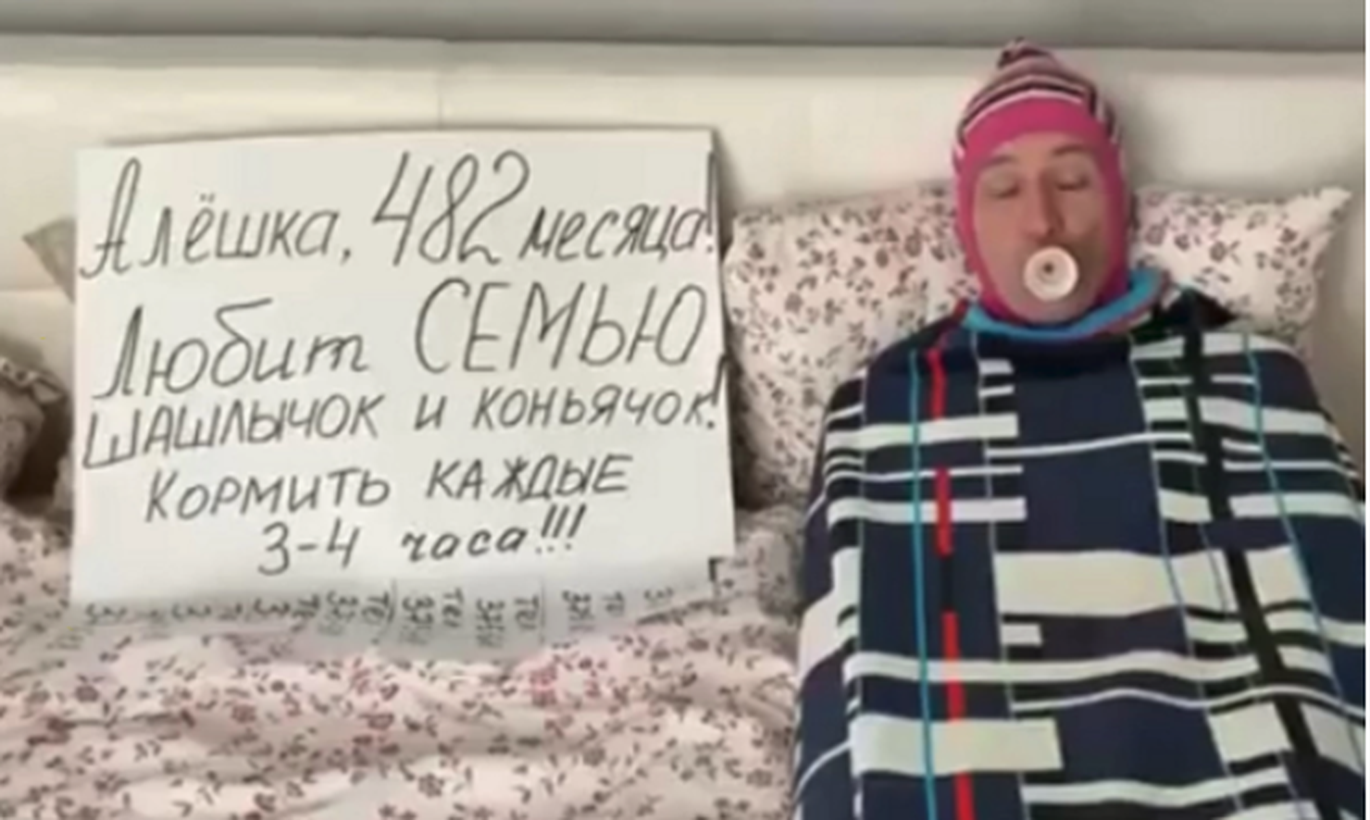 Алёшка, 482 месяца!
Любит СЕМЬЮ
ШАШЛЫЧОК И КОНЬЯЧОК!
КОРМИТЬ КАЖДЫЕ
3-4 часа!!!